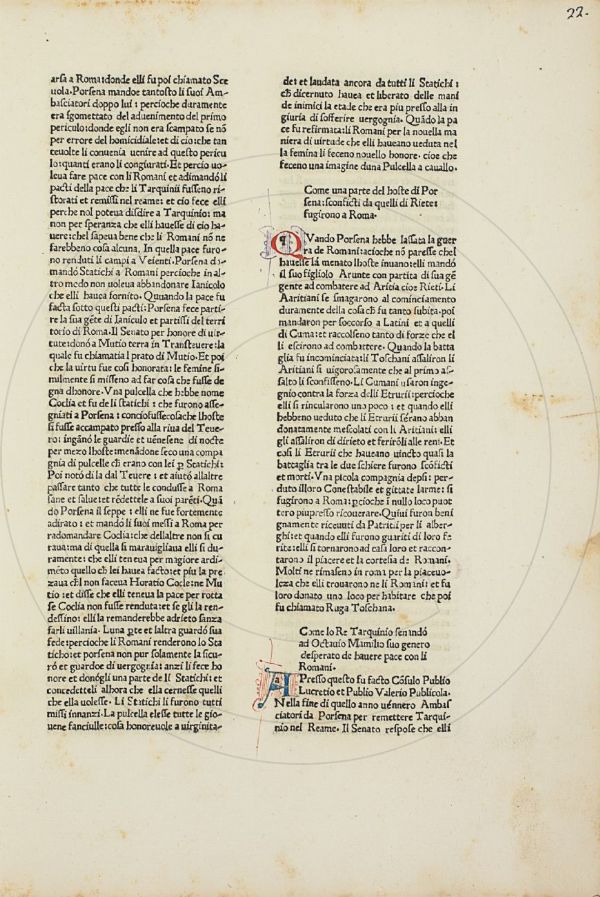 22.
arsa a Roma: donde elli fu poi chiamato Sce
uola. Porsena mandoe tantosto li suoi Am-
basciatori doppo lui: percioche duramente
era sgomettato del aduenimento del primo
periculo: donde egli non era scampato se nõ
per errore del homicidiale: et di cio: che tan
teuolte li conuenia uenire ad questo pericu
lo: quanti erano li congiurati. Et percio uo-
leua fare pace con li Romani et adimandó li
pacti della pace che li Tarquinii fusseno ri-
storati et remissi nel reame: et cio fece elli
perche nol poteua disdire a Tarquinio: ma
non per speranza che elli hauesse di cio ha-
uere: chel sapeua bene che li Romani nõ ne
farebbeno cosa alcuna. In quella pace furo-
no renduti li campi a Veienti. Porsena di-
mandó Statichi a Romani percioche in al-
tro modo non uoleua abbandonare Ianicolo
che elli haueа fornito. Quuando la pace fu
facta sotto questi pacti: Porsena fece parti-
re la sua gẽte di Ianiculo et partissi del terri
torio di Roma. Il Senato per honore di uir-
tute: donó a Mutio terra in Transteuere: la
quale fu chiamatia l prato di Mutio. Et poi
che la uirtu fue cosi honorata: le femine si-
milmente si misseno ad far cosa che fusse de
gna dhonore. Vna pulcella che hebbe nome
Coclia et fu de li statichi : che furono asse-
gniati a Porsena: conciofussecosache lhoste
si fusse accampato presso alla riua del Teue-
ro: ingãnó le guardie et uẽnesene di nocte
per mezo lhoste: menãdone seco una compa
gnia di pulcelle ch̃ erano con lei p Statichi:
Poi notó di la dal Teuere : et aiutó allaltre
passare tanto che tutte le condusse a Roma
sane et salue: et rẽdettele a suoi parẽti. Quã
do Porsena il seppe : elli ne fue fortemente
adirato: et mandó li suoi messi a Roma per
radomandare Coclia: che dellaltre non si cu
raua: ma di quella si marauigliaua elli si du-
ramente: che elli teneua per magiore ardi-
mẽto quello ch̃ lei haueа facto: et piu la pre
zaua ch̃l non faceua Horatio Cocle: ne Mu
tio: et disse che elli teneua la pace per rotta
se Coclia non fusse renduta: et se gli la ren-
dessino: elli la remanderebbe adrieto sanza
farli uillania. Luna pte et laltra guardó sua
fede: percioche li Romani renderono lo Sta
tico: et porsena non pur solamente la sicu-
ró et guardoe di uergogna: anzi li fece ho
nore et donégli una parte de li Statichi: et
concedetteli alhora che ella cernesse quelli
che ella uolesse. Li Statichi li furono tutti
missi innanzi. La pulcella elesse tutte le gio-
uene fanciulle: cosa honoreuole a uirginita-
de: et laudata ancora da tutti li Statichi :
ch̃ dicernuto haueа et liberato delle mani
de inimici la etade che era piu presso alla in
giuria di sofferire uergognia. Quãdo la pa
ce fu refirmata: li Romani per la nouella ma
niera di uirtude che elli haueano ueduta nel
la femina li feceno nouello honore. cioe che
feceno una imagine duna Pulcella a cauallo.
Come una parte del hoste di Por
sena: sconficti da quelli di Riete:
fugirono a Roma.
QVando Porsena hebbe lassata la guer
ra de Romani: acioche nõ paresse chel
hauesse li menato lhoste inuano: elli mandó
il suo figliolo Arunte con partita di sua gẽ
gente ad combatere ad Aritia cioe Rieti. Li
Aaritiani se smagarono al cominciamento
duramente della cosa ch̃ fu tanto subita: poi
mandaron per soccorso a Latini et a quelli
di Cuma: et raccolseno tanto di forze che el
li escirono ad combattere. Quando la batta
glia fu incominciata: li Toschani assaliron li
Aritiani si uigorosamente che al primo as-
salto li sconfisseno. Li Cumani usaron inge-
gnio contra la forza delli Etrurii: percioche
elli si rincularono uno poco : et quando elli
hebbeno ueduto che li Etrurii serano abban
donatamente mescolati con li Aritiani: elli
gli assaliron di dirieto et ferirõli alle reni. Et
cosi li Etrurii che haueano uincto quasi la
battaglia tra le due schiere furono scõficti
et morti. Vna picola compagnia depsi : per-
duto illoro Conestabile et gittate larme: si
fugirono a Roma: pcioche ĩ nullo loco puot
tero piupresso ricouerare. Quiui furon beni
gnamente riceuuti da Patritii per li alber-
ghi: et quando elli furono guariti di loro fe
rite: elli si tornarono ad casi loro et raccon-
tarono il piacere et la cortesia de Romani.
Molti ne rimaseno in roma per la piaceuo-
leza che elli trouarono ne li Romani: et fu
loro donato uno loco per habitare che poi
fu chiamato Ruga Toschana.
Come lo Re Tarquinio sen andó
ad Octauio Mamilio suo genero
desperato de hauere pace con li
Romani.
APresso questo fu facto Cõsulo Publio
Lucretio et Publio Valerio Publicola.
Nella fine di quello anno uẽnero Ambas
ciatori da Porsena per remettere Tarqui-
nio nel Reame. Il Senato respose che elli